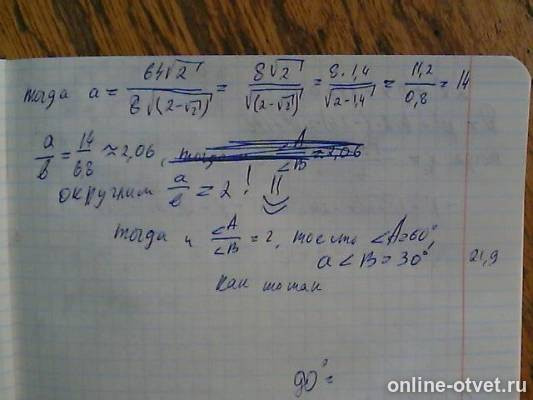 тогда a = 64√2 / 8√(2-√2) = 8√2 / √(2-√2) = 8·1,4 / √2-1,4 = 11,2 / 0,8 = 14
a/b = 14/68 ≈ 2,06, тогда ∠A/∠B ≈ 2,06
округлим a/b = 2 !
тогда и ∠A/∠B = 2, то есть ∠A=60°,
а ∠B = 30°,
21,9
90° =
online-otvet.ru